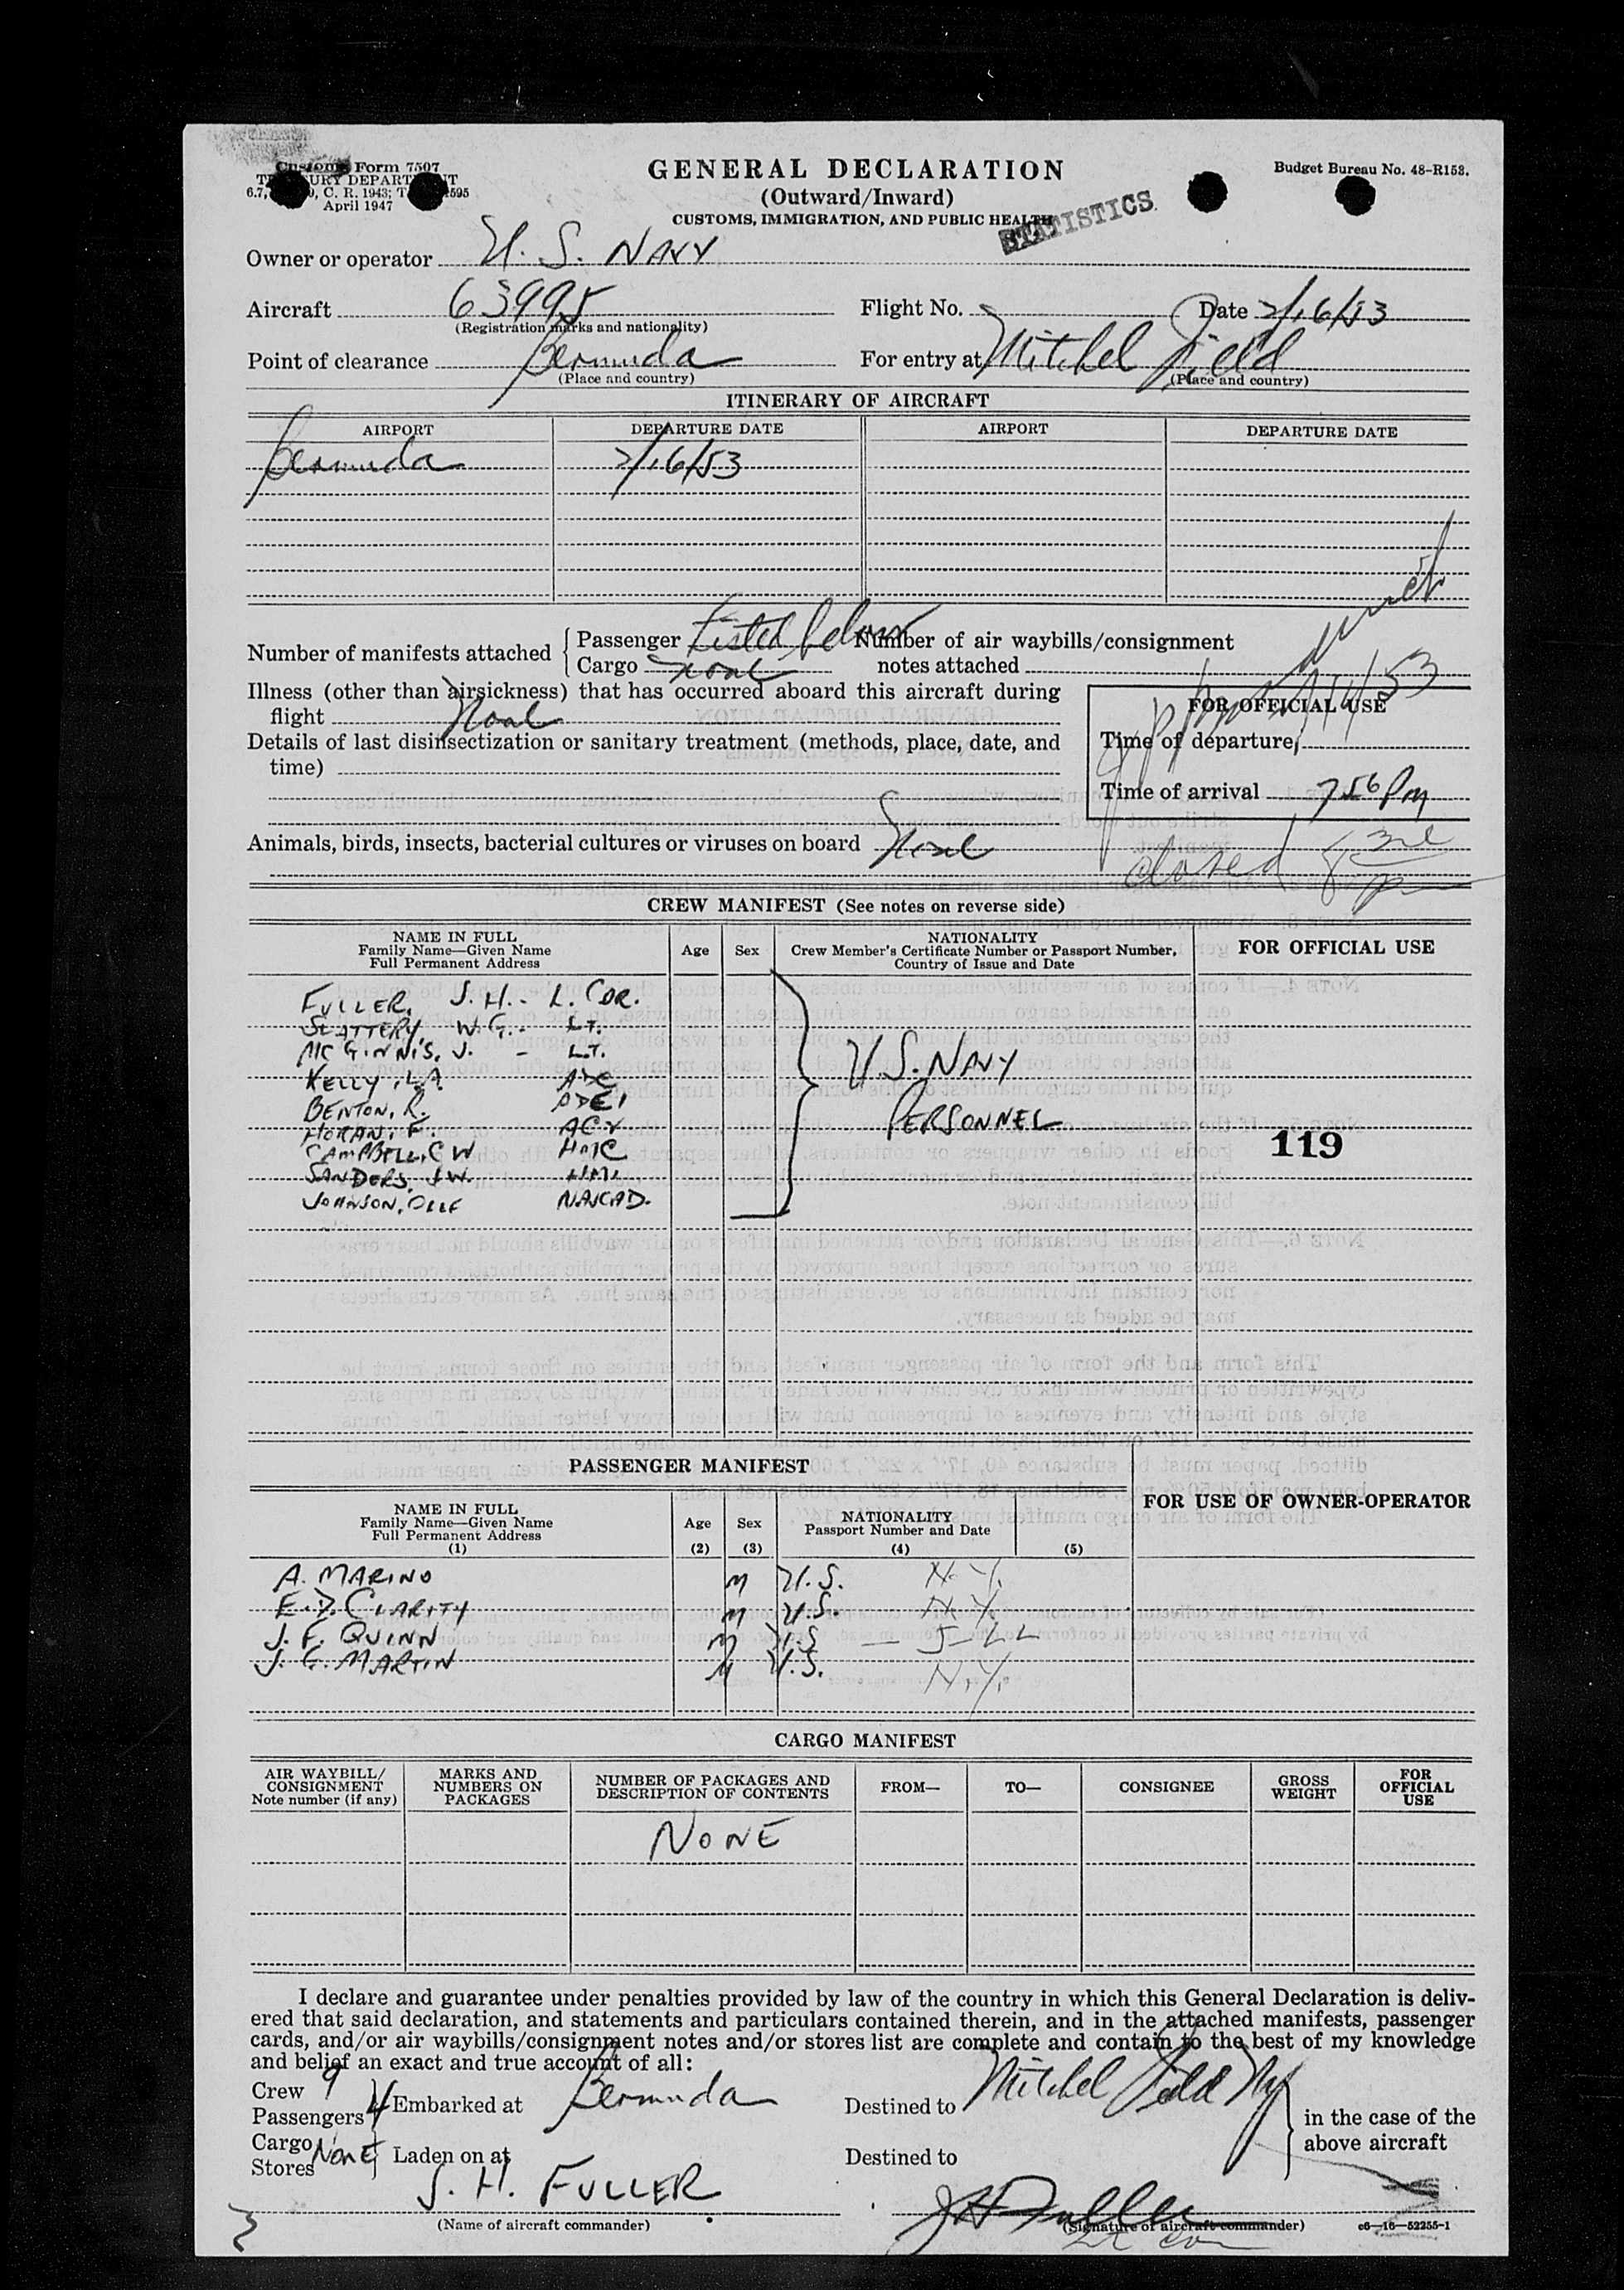 Customs Form 7507
TREASURY DEPARTMENT
C. R. 1943;
April 1947
GENERAL DECLARATION
(Outward/Inward)
CUSTOMS, IMMIGRATION, AND PUBLIC HEALTH
STATISTICS
Budget Bureau No. 48-R153.
Owner or operator U. S. NAVY
Aircraft 63995 Flight No. Date 2/16/53
(Registration marks and nationality)
Point of clearance Bermuda For entry at Mitchel Field
(Place and country) (Place and country)
ITINERARY OF AIRCRAFT
AIRPORT DEPARTURE DATE AIRPORT DEPARTURE DATE
Bermuda 2/16/53
Number of manifests attached { Passenger Listed below Number of air waybills/consignment
Cargo None notes attached
Illness (other than airsickness) that has occurred aboard this aircraft during
flight None
Details of last disinsectization or sanitary treatment (methods, place, date, and
time)
FOR OFFICIAL USE
Time of departure,
Time of arrival 7 56 Pm
Animals, birds, insects, bacterial cultures or viruses on board None
closed 8
CREW MANIFEST (See notes on reverse side)
NAME IN FULL
Family Name—Given Name
Full Permanent Address
Age Sex
NATIONALITY
Crew Member's Certificate Number or Passport Number,
Country of Issue and Date
FOR OFFICIAL USE
FULLER, J. H. - L. CDR.
SLATTERY, W. G. - LT.
MCGINNIS, J. - LT.
KELLY, L.A. ADC
BENTON, R. ADE1
HORAN, F.
CAMPBELL, C W HMC
SANDERS, J W. HM1
JOHNSON, OLLE
U.S. NAVY
PERSONNEL
119
PASSENGER MANIFEST
NAME IN FULL
Family Name—Given Name
Full Permanent Address
(1)
Age
(2)
Sex
(3)
NATIONALITY
Passport Number and Date
(4) (5)
FOR USE OF OWNER-OPERATOR
A. MARINO M U.S. N.Y.
E. D. CLARITY M U.S. N.Y.
J. F. QUINN M U.S
J. G. MARTIN M U.S. N.Y.
CARGO MANIFEST
AIR WAYBILL/
CONSIGNMENT
Note number (if any)
MARKS AND
NUMBERS ON
PACKAGES
NUMBER OF PACKAGES AND
DESCRIPTION OF CONTENTS
FROM— TO— CONSIGNEE
GROSS
WEIGHT
FOR
OFFICIAL
USE
NONE
I declare and guarantee under penalties provided by law of the country in which this General Declaration is deliv-
ered that said declaration, and statements and particulars contained therein, and in the attached manifests, passenger
cards, and/or air waybills/consignment notes and/or stores list are complete and contain to the best of my knowledge
and belief an exact and true account of all:
Crew 9
Passengers 4 Embarked at Bermuda Destined to Mitchel Field NY
in the case of the
above aircraft
Cargo
Stores NONE Laden on at Destined to
J. H. FULLER
(Name of aircraft commander)
J H Fuller
(Signature of aircraft commander)
Lt Cdr
c6—16—52255-1